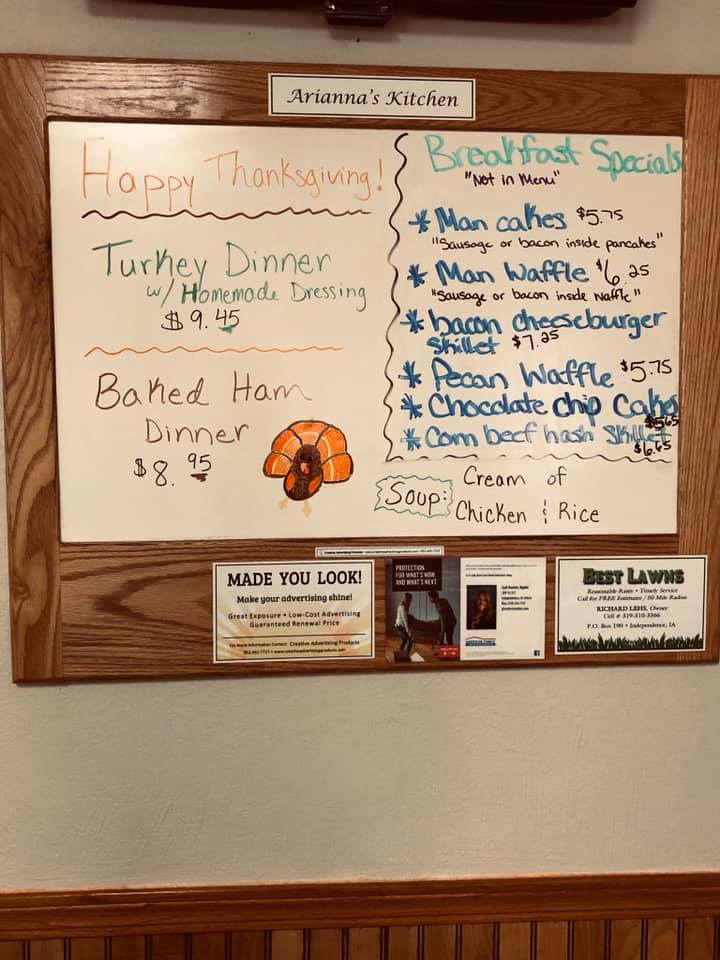 Arianna's Kitchen
Happy Thanksgiving!
Turkey Dinner
w/ Homemade Dressing
$9.45
Baked Ham
Dinner
$8.95
Breakfast Specials
"Not in Menu"
* Man cakes $5.75
"Sausage or bacon inside pancakes"
* Man Waffle $6.25
"Sausage or bacon inside waffle"
* bacon cheeseburger
Skillet $7.25
* Pecan Waffle $5.75
* Chocolate chip Cakes
$5.65
* Corn beef hash Skillet
$6.65
Soup: Cream of
Chicken & Rice
MADE YOU LOOK!
Make your advertising shine!
Great Exposure • Low-Cost Advertising
Guaranteed Renewal Price
Creative Advertising Products
PROTECTION
FOR WHAT'S NOW
AND WHAT'S NEXT
BEST LAWNS
Reasonable Rates • Timely Service
Call for FREE Estimates / 50 Mile Radius
RICHARD LEHS, Owner
Cell # 319-310-3366
P.O. Box 190 • Independence, IA